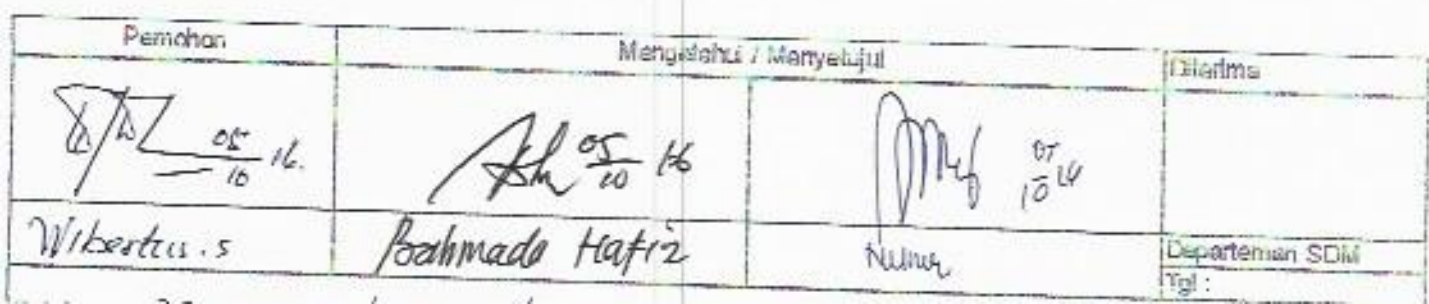 Pemohon
Mengetahui / Menyetujui
Diterima
05/10 16.
05/10 16
07/10 16
Wibertus.s
Hafiz
Departemen SDM
Tgl :